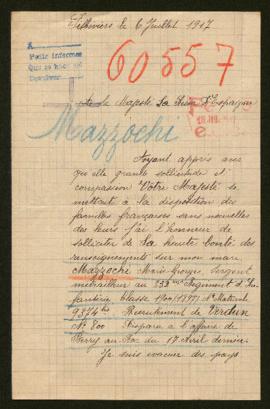 Pithiviers le 6 Juillet 1917
60557
A
Pedir informes
A Sa Majesté La Reine d'Espagne
Mazzochi
Ayant appris avec
quelle grande sollicitude et
compassion Votre Majesté se
mettait à la disposition des
familles françaises sans nouvelles
des leurs j'ai l'honneur de
solliciter de Sa haute bonté des
renseignements sur mon mari
Mazzochi Marie Georges, Sergent
mitrailleur au 333me Régiment d'In-
fanterie Classe
Recrutement de Verdun
No 800 Disparu à l'affaire de
Berry au Bac du 17 Avril dernier.
Je suis évacuée des pays